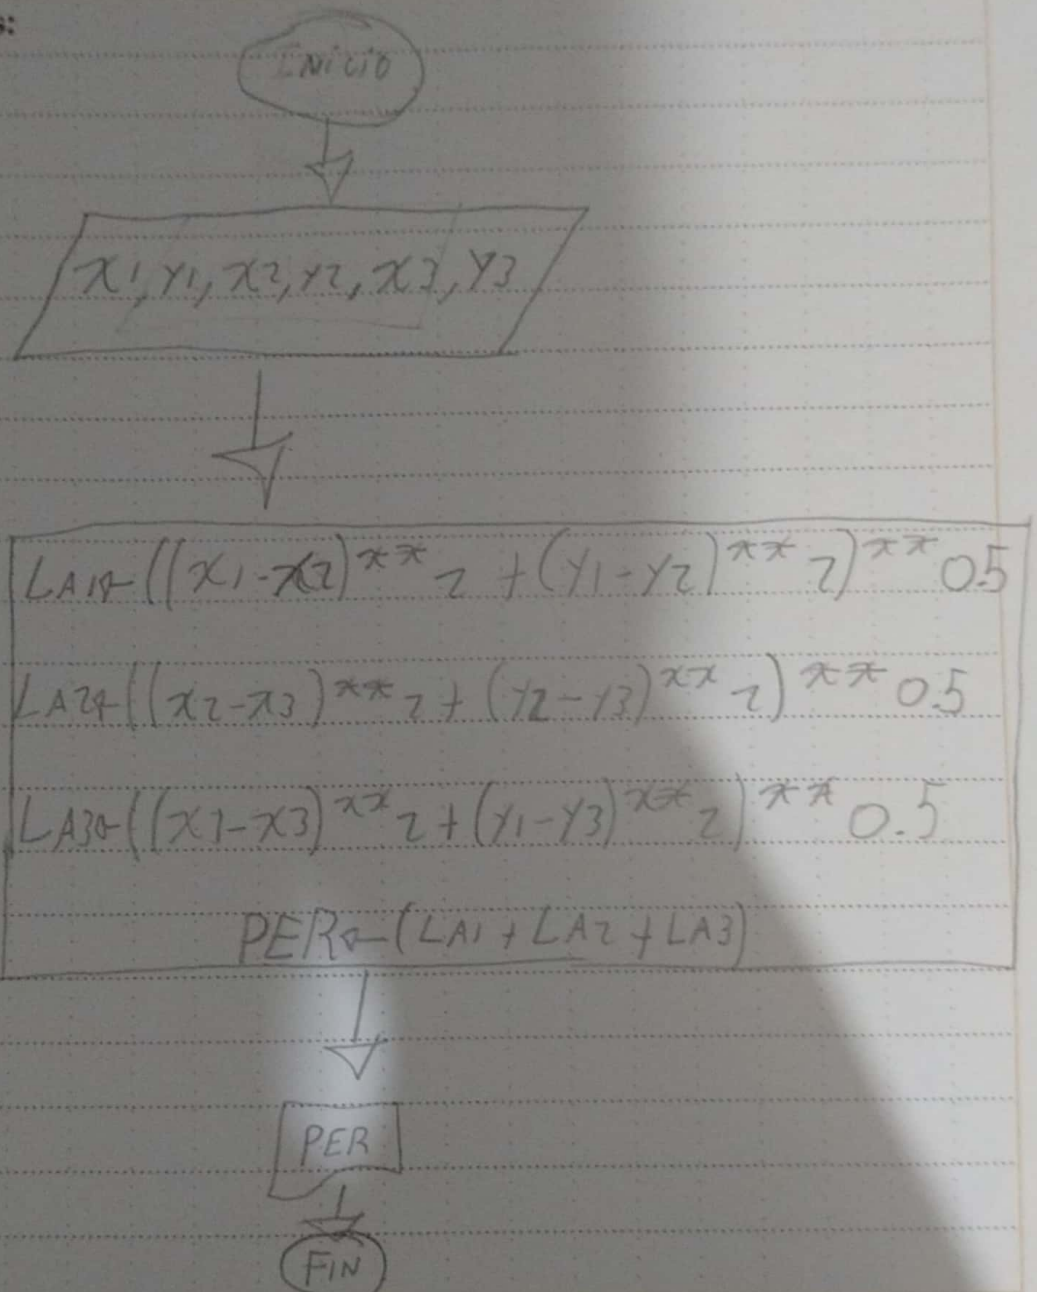 s:
Inicio
X1, Y1, X2, Y2, X3, Y3
LA1←((X1-X2)**2 +(Y1-Y2)**2)**0.5
LA2←((X2-X3)**2+(Y2-Y3)**2)**0.5
LA3←((X1-X3)**2+(Y1-Y3)**2)**0.5
PER←(LA1+LA2+LA3)
PER
FIN